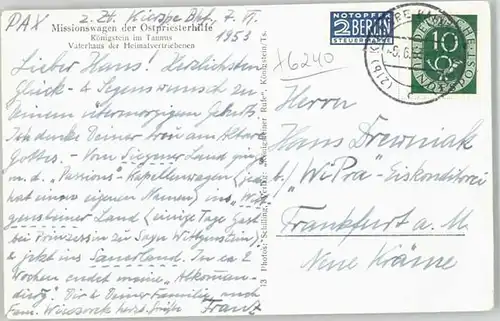 PAX z. Zt. Kierspe Bhf, 7. VI. 1953
Missionswagen der Ostpriesterhilfe
Königstein im Taunus
Vaterhaus der Heimatvertriebenen
Lieber Hans! Herzlichsten
Glück- & Segenswunsch zu
Deinem übermorgigen Geburts
Ich denke Deiner treu am Altare
Gottes. - Vom Siegener Land ging
m. d. "Passions"-Kapellenwagen (jede
hat einen eigenen Namen) ins "Witt
gensteiner Land (einige Tage Gast
bei Prinzessin zu Sayn Wittgenstein)
& jetzt ins Sauerland. In ca 2
Wochen endet meine "Abkomman-
dirg". Dir & Deiner Familie, auch
Fam. herzl. Grüße Franz
13 Photos: Schilling, Königstein, Ts.
NOTOPFER
2 BERLIN
STEUERMARKE
DEUTSCHE BUNDESPOST
10
+6240
Herrn
Hans Drewniak
b/ "WiPra"-Eiskonditorei
Frankfurt a. M.
Neue Kräme